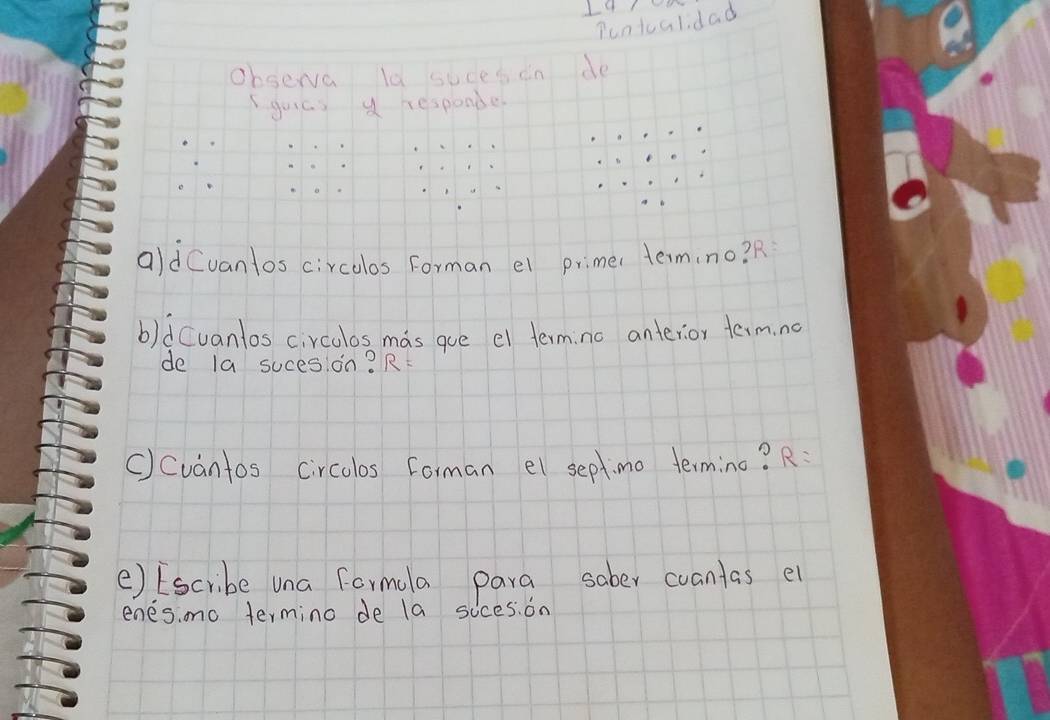 Puntualidad
Observa la sucesión de
figuras y responde.
a) ¿Cuantos circulos Forman el primer termino? R=
b) ¿Cuantos circulos más que el termino anterior termino
de la sucesión? R=
c) Cuántos circulos Forman el septimo termino? R=
e) Escribe una Formula para saber cuantas el
enésimo termino de la sucesión